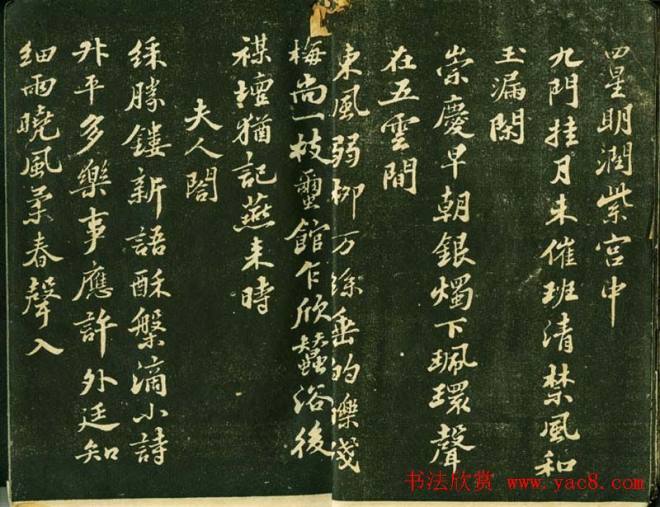 四星明潤紫宮中
九門挂月未催班清禁風和
玉漏閑
崇慶早朝銀燭下珮環聲
在五雲間
東風弱柳万絲垂的皪殘
梅尚一枝蠒館乍欣蠶浴後
禖壇猶記燕来時
夫人閤
綵勝鏤新語酥槃滴小詩
升平多樂事應許外廷知
細雨曉風柔春聲入
书法欣赏 www.yac8.com